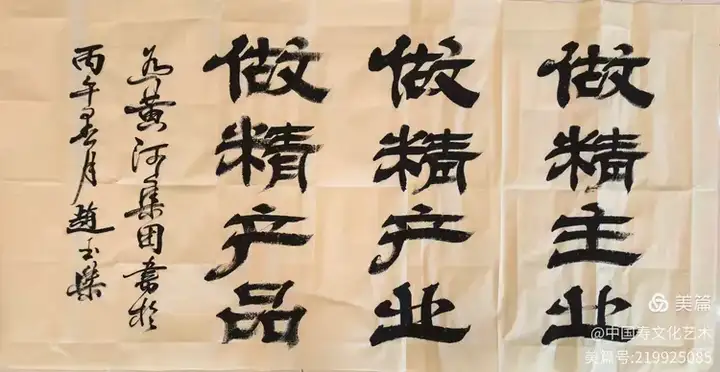 做精主业
做精产业
做精产品
为黄河集团書於
丙午春月趙玉
美篇
@中国寿文化艺术
美篇号:219925085